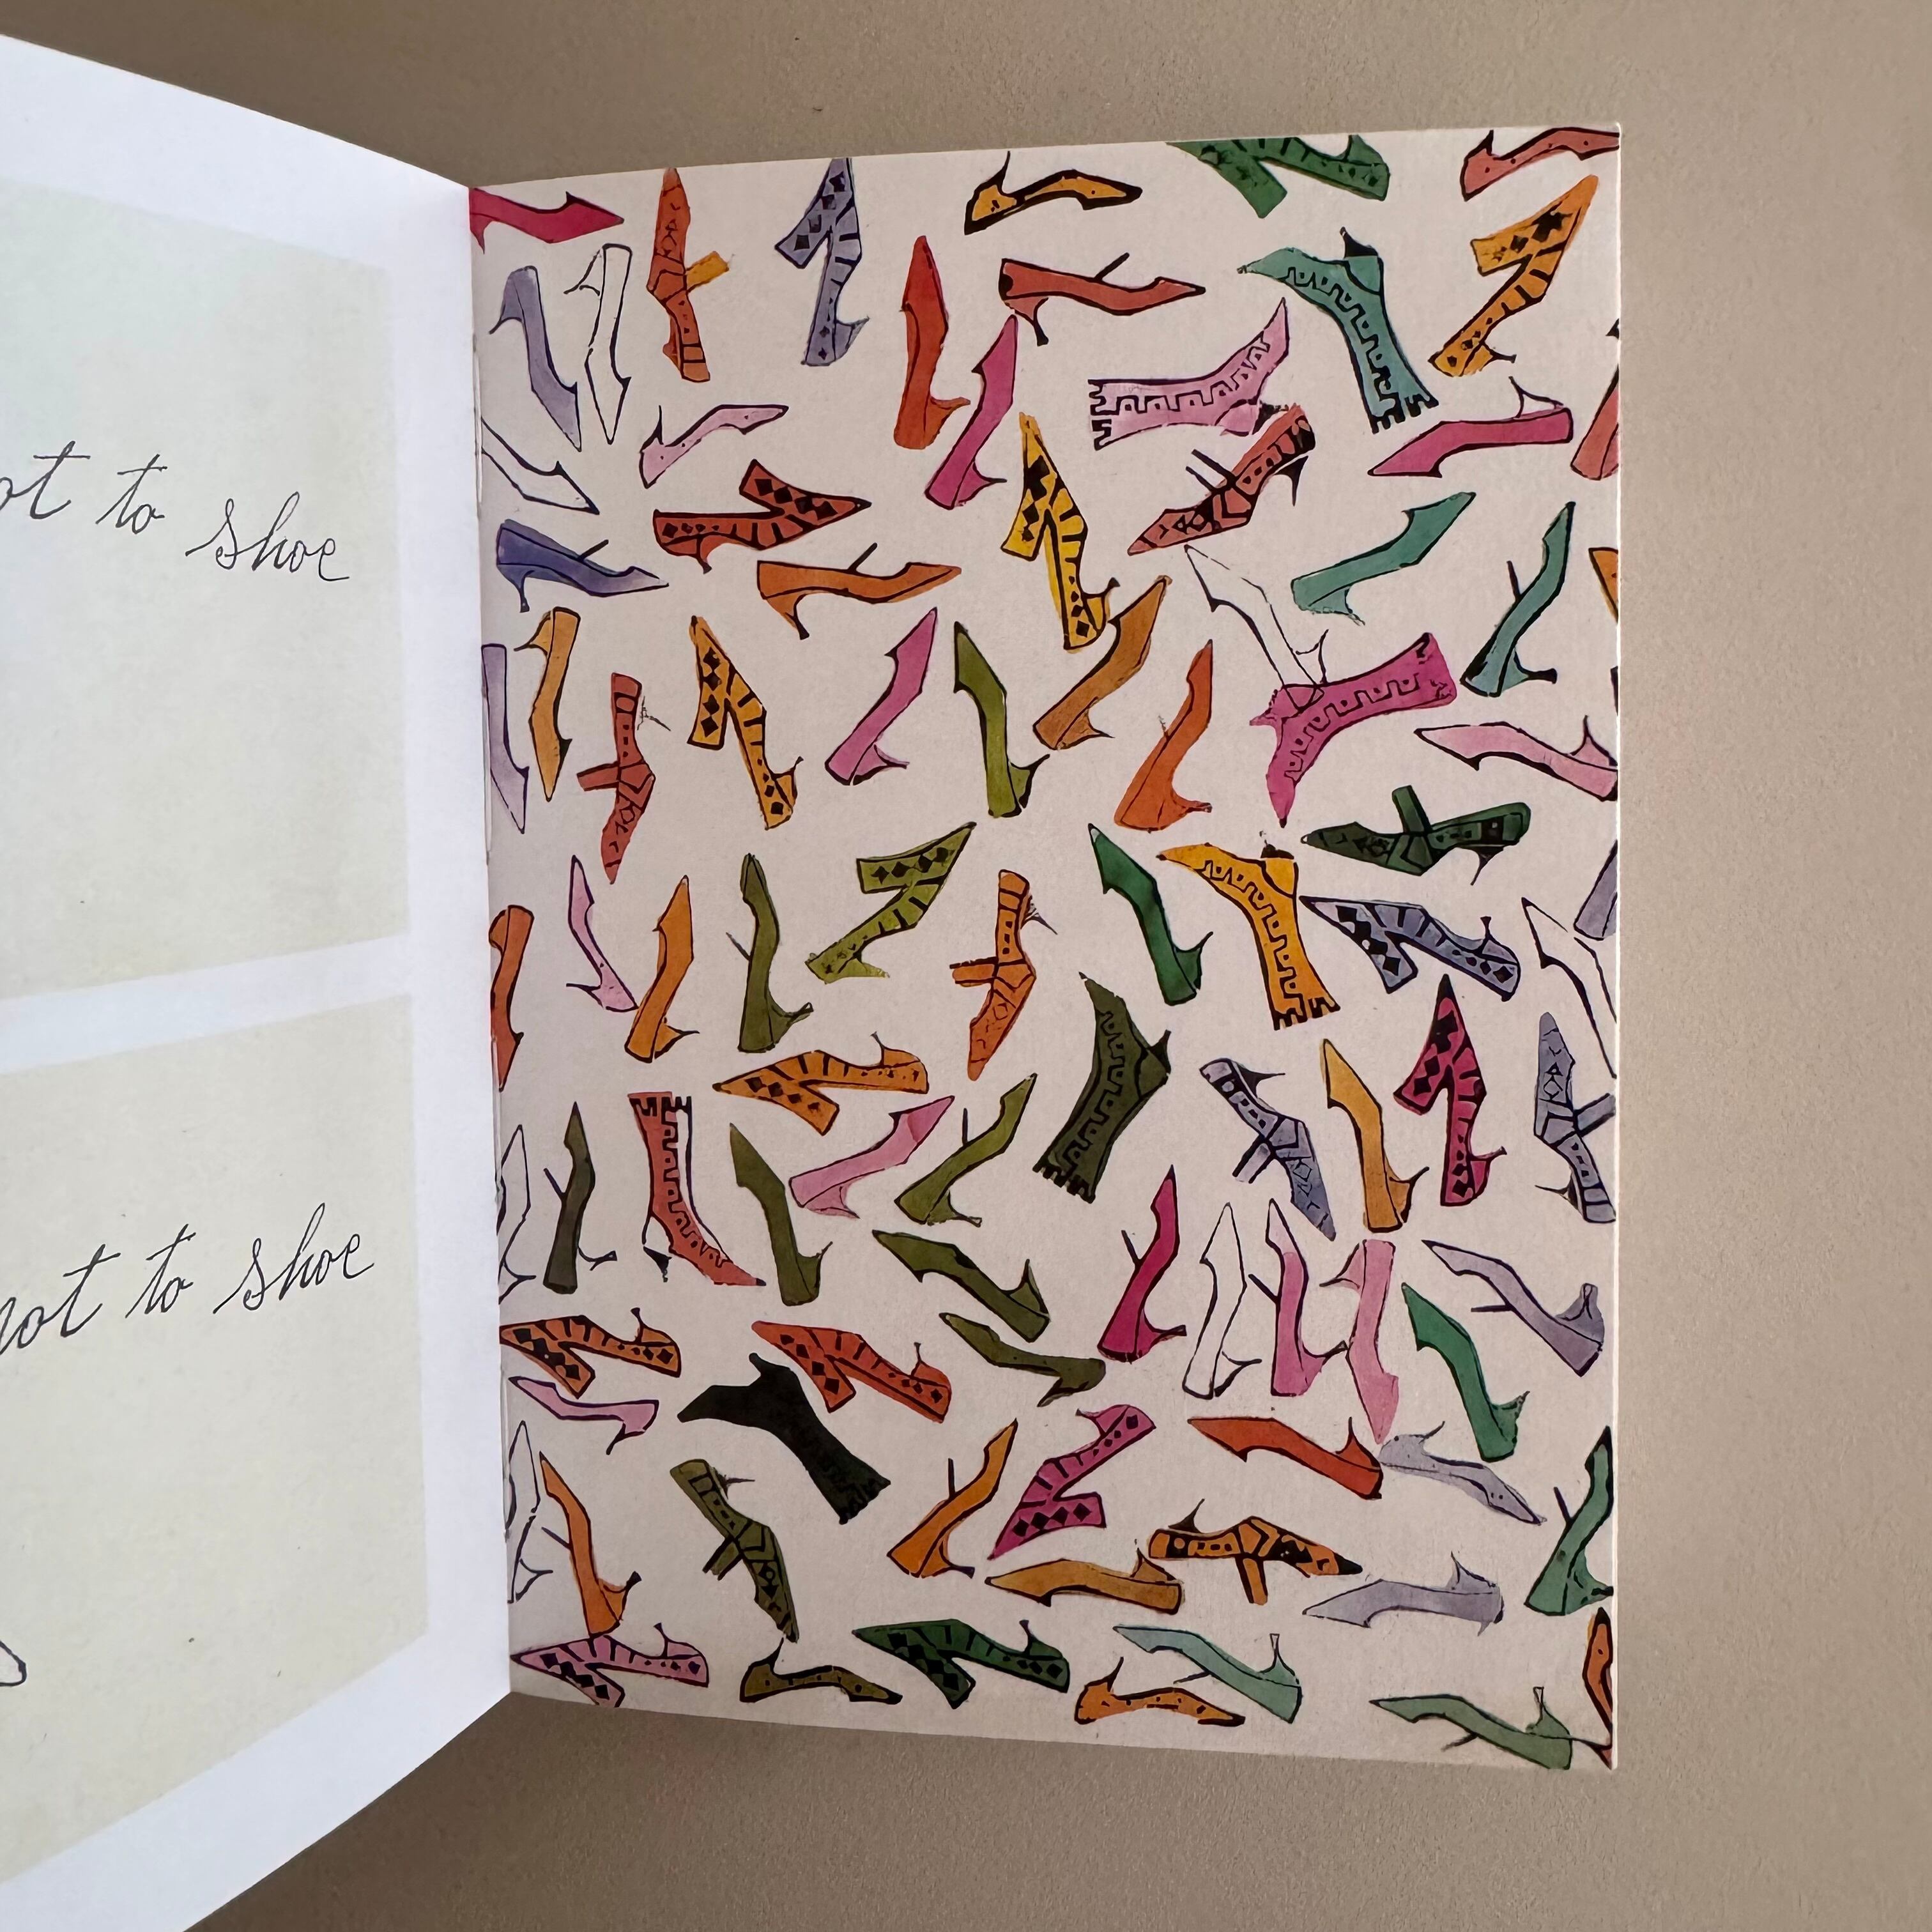 not to shoe
not to shoe